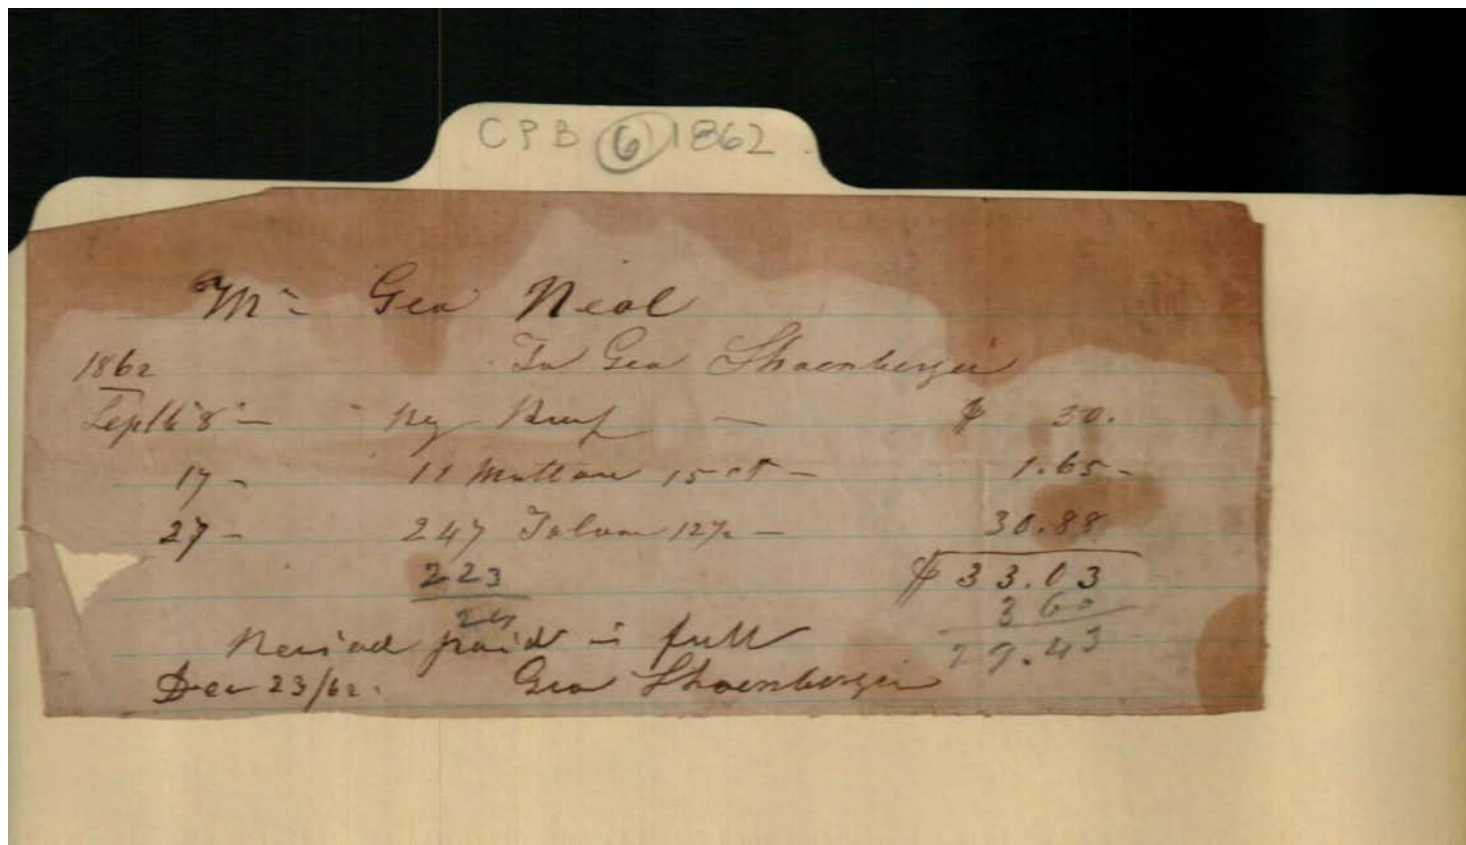 CPB 6 1862
Mr Geo Neal
1862 To Geo Shoenberger
Sept 8 - Beef - $ 50.
17 - 11 Mutton 15 ct - 1.65 -
27 - 247 12½ - 30.88
223 $ 33.03
24 3 60
Received paid in full 29.43
Dec 23/62. Geo Shoenberger